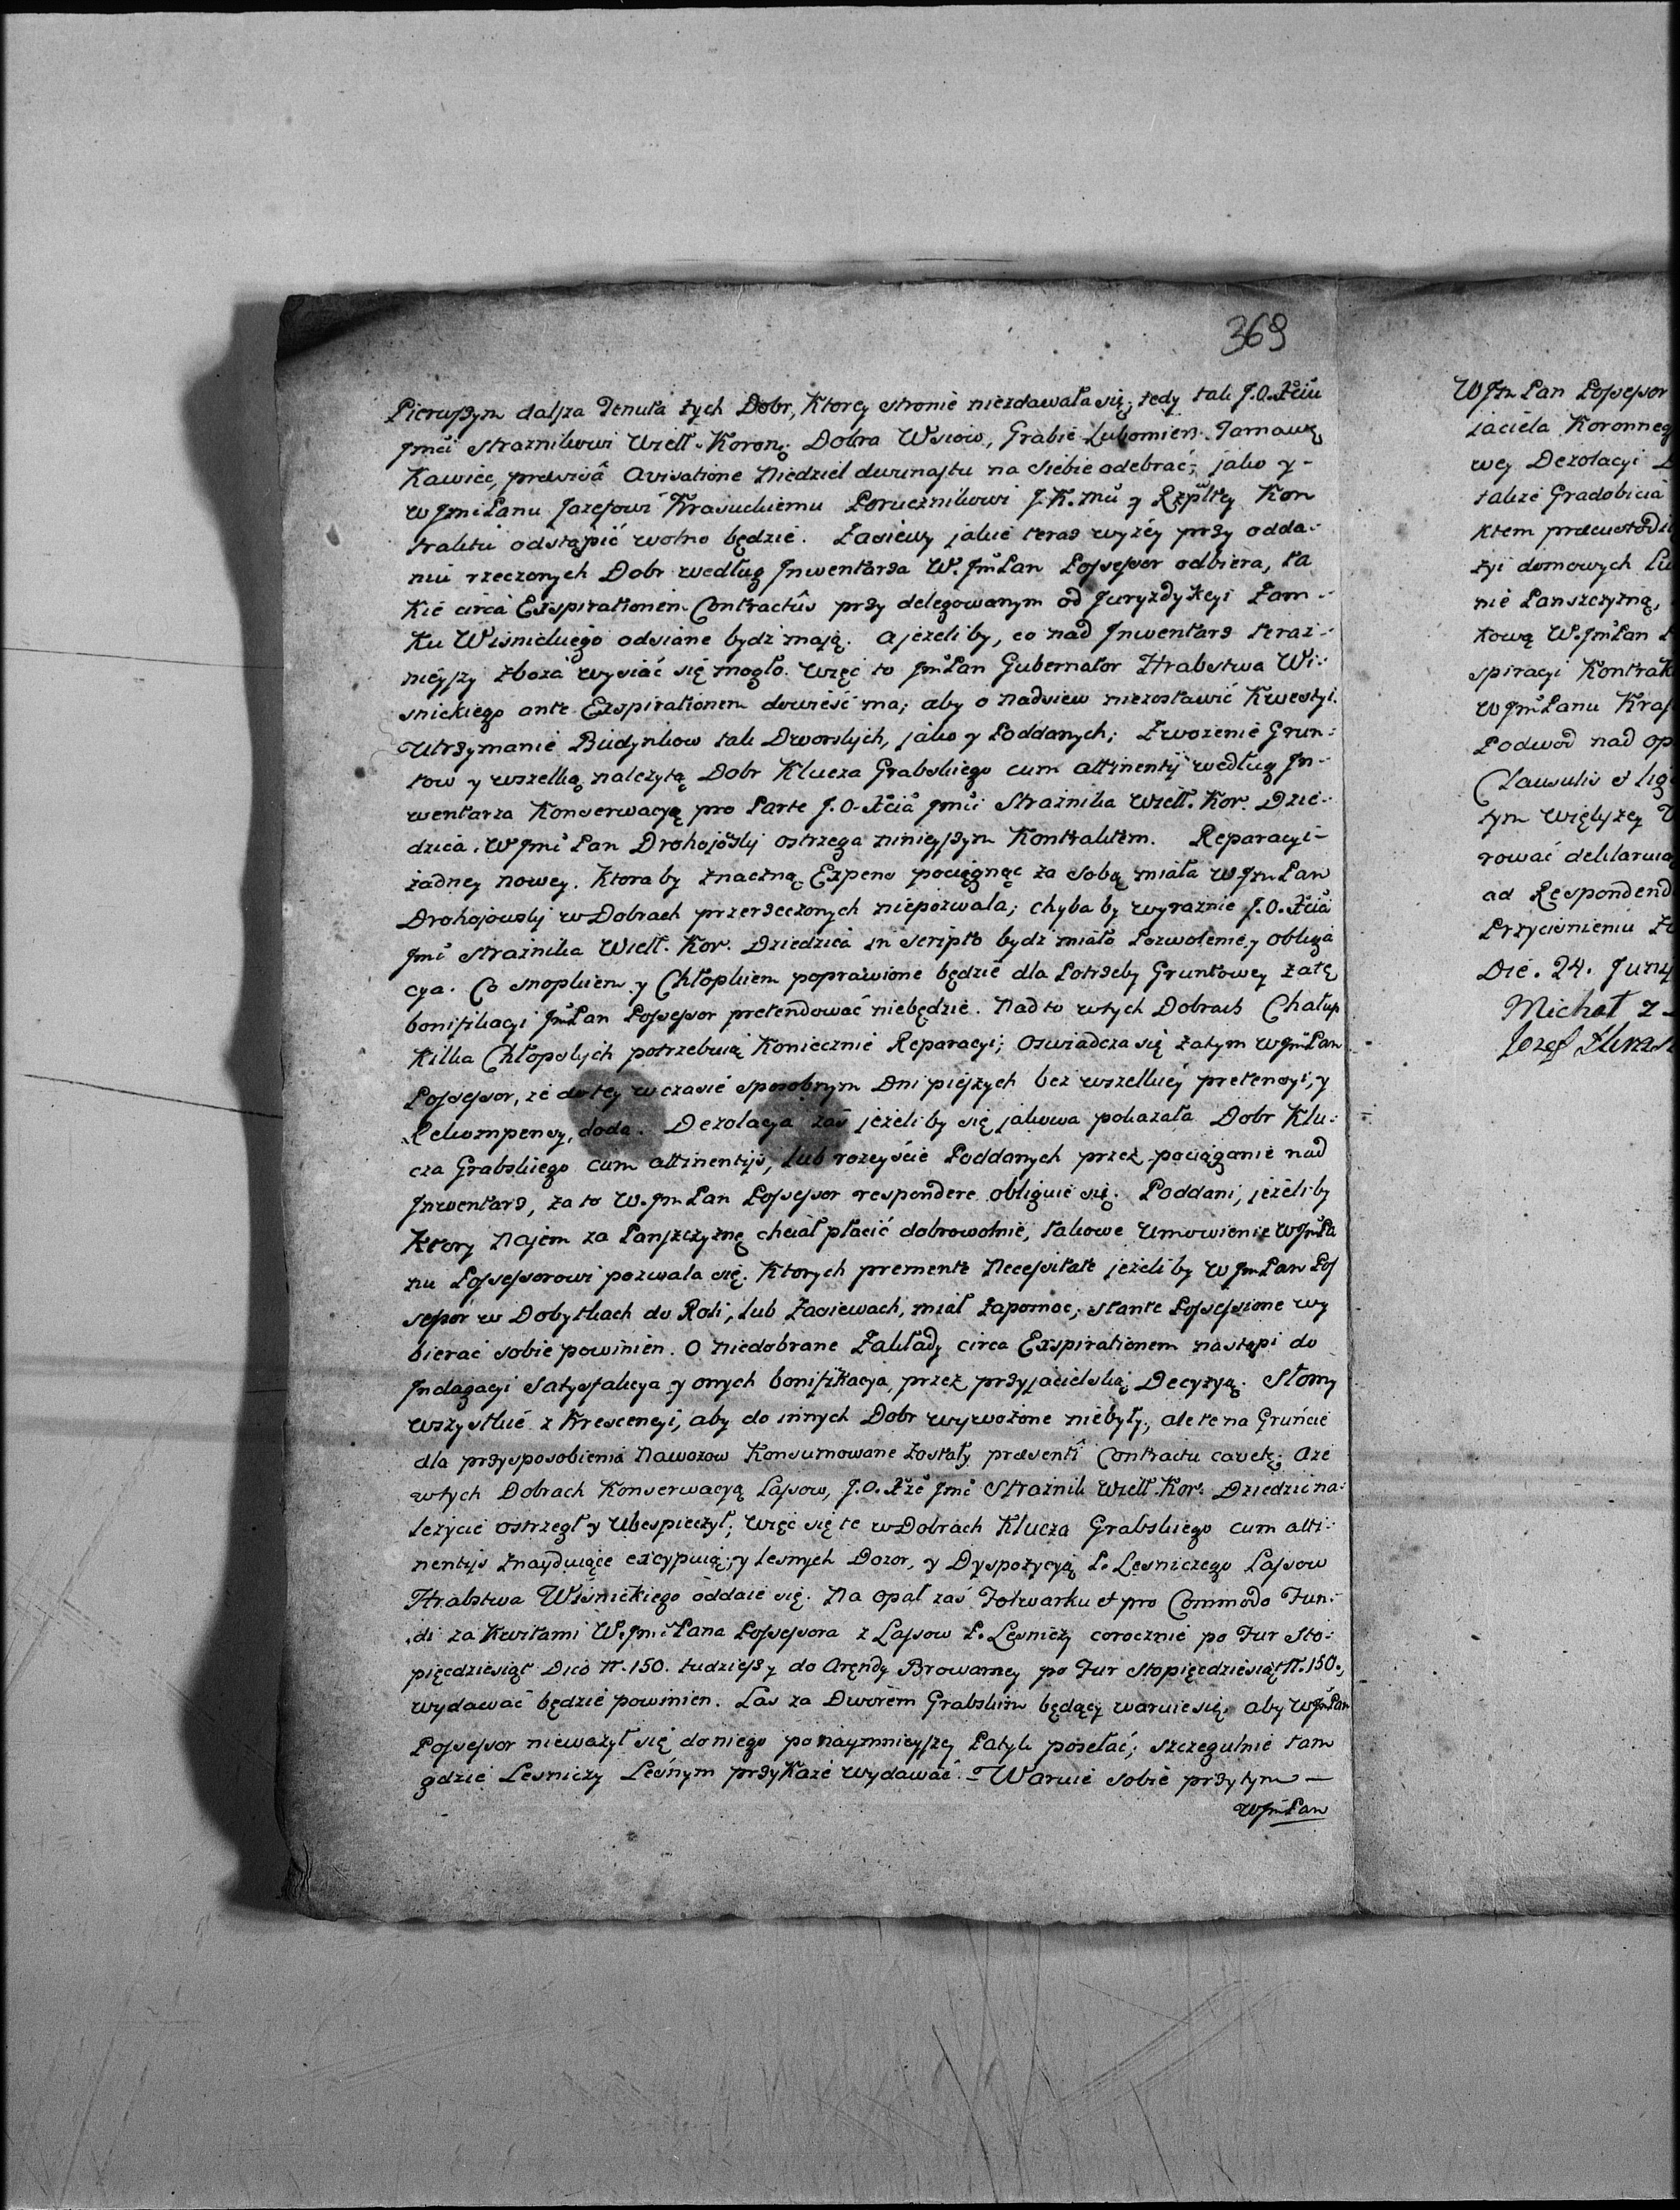 369
Pierwszym dalsza Tenuta tych Dobr, Ktorey stronie niezdawała się; tedy tak J.O. Xciu
Jmći Strażnikowi Wielk. Koronn. Dobra Wsiow, Grabie Lubomierz. Tarnawę
Kawiec, prævisâ Avisatione Niedziel dwunastu na siebie odebrać; jako y-
w Jmć Panu Jozefowi Krasuckiemu Porucznikowi J.K.Mci y Rzpltey Kon
traktu odstąpić wolno będzie. Zasiewy jakie teraz wyżey przy odda-
niu rzeczonych Dobr według Inwentarza W. Jmć Pan Possessor odbiera, ta
kie circa Exspirationem Contractûs przy delegowanym od Juryzdykcyi Zam-
ku Wisnickiego odsiane bydź mają. A jeżeliby, co nad Inwentarz teraz-
nieyszy zboża wysiać się mogło. Więc to Jmć Pan Gubernator Hrabstwa Wi-
snickiego ante Exspirationem dowieść ma, aby o nadsiew niezostawić Kwestyi.
Utrzymanie Budynkow tak Dworskich, jako y Poddanych; Zwożenie Grun-
tow y wszelką należytą Dobr Klucza Grabskiego cum attinentijs według In-
wentarza Konserwacyą pro Parte J.O. Xcia Jmći Strażnika Wielk. Kor. Dzie-
dzica. W Jmć Pan Drohojoski ostrzega ninieyszym Kontraktem. Reparacyi-
żadney nowey. Ktoraby znaczną Expens pociągnąc za sobą miała W Jmć Pan
Drohojowski w Dobrach przerzeczonych niepozwala; chyba by wyraznie J.O. Xcia
Jmć Strażnika Wielk. Kor. Dziedzica in Scripto bydź miało Pozwolenie, y obliga
cya. Co snopkiem y Chłopkiem poprawione będzie dla Potrzeby Gruntowey zatę
bonifikacyi Jmć Pan Possessor pretendować niebędzie. Nadto w tych Dobrach Chałup
Kilka Chłopskich potrzebuią Koniecznie Reparacyi; Oswiadcza się zatym W Jmć Pan
Possessor, że do tey w czasie sposobnym Dni pieszych bez wszelkiey pretensyi, y
Rekompensy, doda. Dezolacya zaś jeżeliby się jakowa pokazała Dobr Klu-
cza Grabskiego cum attinentijs, lub rozeyście Poddanych przez pociąganie nad
Inwentarz, za to W. Jmć Pan Possessor respondere obliguie się. Poddani, jeżeliby
Ktory Najem za Panszczyznę chciał płacić dobrowolnie, takowe Umowienie W Jmć Pa
nu Possessorowi pozwala się. Ktorych premente Necessitate jeżeliby W Jmć Pan Pos
sessor w Dobytkach do Roli, lub Zasiewach, miał zapomoc; stante Possessione wy
bierać sobie powinien. O niedobrane Zakłady circa Exspirationem nastąpi do
Indagacyi Satysfakcya y onych bonifikacya, przez przyjacielską Decyzyą. Słomy
wszystkie z Krescencyi, aby do innych Dobr wywożone niebyły, ale te na Gruncie
dla przysposobienia Nawozow Konsumowane zostały præsenti Contractu cavetr; Aże
w tych Dobrach Konserwacyą Lassow, J.O. Xże Jmć Strażnik Wielk. Kor. Dziedzic na-
leżycie ostrzegł y Ubespieczył; więc się te w Dobrach Klucza Grabskiego cum atti-
nentijs znayduiące excypuią; y lesnych Dozor, y Dyspozycyą P. Lesniczego Lassow
Hrabstwa Wisnickiego oddaie się. Na opał zaś Folwarku et pro Commodo Fun-
di za Kwitami W. Jmć Pana Possessora z Lassow P. Lesniczy corocznie po Fur Sto-
pięcdziesiąt Dico N. 150. tudzieszy do Arendy Browarney po Fur Stopięcdziesiąt N. 150.,
wydawać będzie powinien. Las za Dworem Grabskim będący waruie się, aby W Jmć Pan
Possessor nieważył się do niego po naymnieyszey Patyk posełać; szczegulnie tam
gdzie Lesniczy Leśnym przykaże wydawać. - Waruie sobie przytym —
W Jmć Pan
W Jmć Pan Possessor
jaciela Koronneg
wey Dezolacyi
także Gradobicia
ktem
zyi domowych
nie Panszczyzną,
kową W. Jmć Pan
spiracyi Kontrak
W Jmć Panu Kras
Podwod nad op
Clausulis et lig
tym większey
rować deklaruią
ad Respondend
Przycisnieniu
Die. 24. Junij
Michał z
Jozef Kras